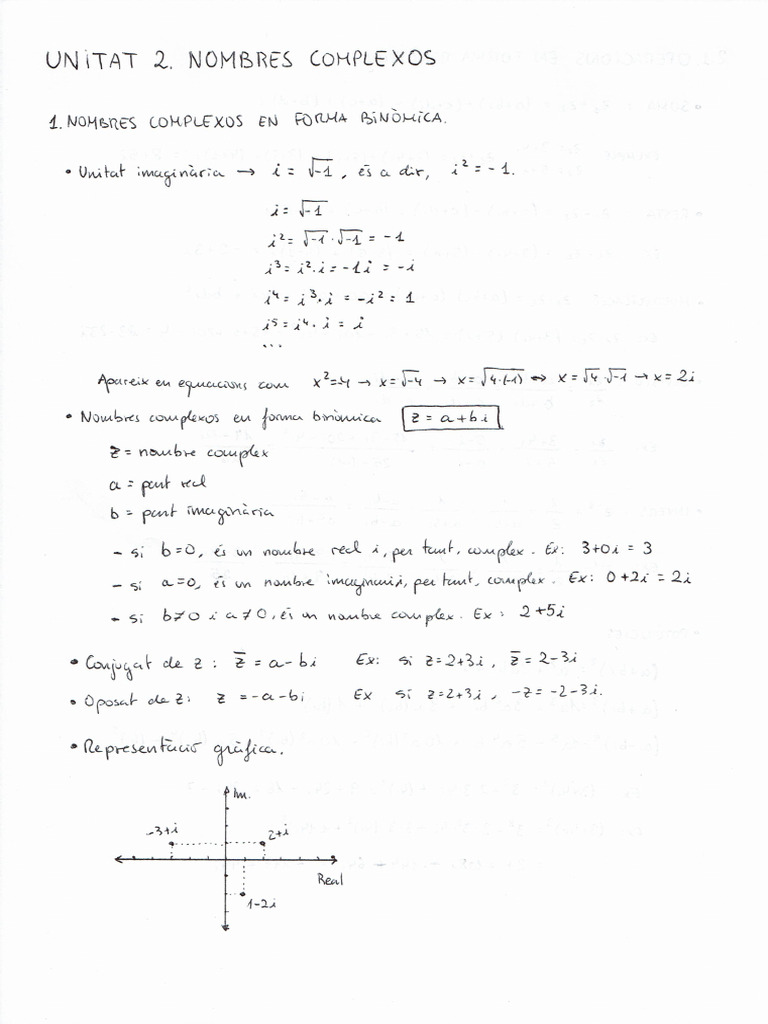 UNITAT 2. NOMBRES COMPLEXOS
1. NOMBRES COMPLEXOS EN FORMA BINÒMICA.
• Unitat imaginària → i = √-1, és a dir, i² = -1.
i = √-1
i² = √-1 · √-1 = -1
i³ = i² · i = -1i = -i
i⁴ = i³ · i = -i² = 1
i⁵ = i⁴ · i = i
...
Apareix en equacions com x² = -4 → x = √-4 → x = √4·(-1) ↔ x = √4 · √-1 → x = 2i
• Nombres complexos en forma binòmica z = a + bi
z = nombre complex
a = part real
b = part imaginària
- si b=0, és un nombre real i, per tant, complex. Ex: 3+0i = 3
- si a=0, és un nombre imaginari i, per tant, complex. Ex: 0+2i = 2i
- si b≠0 i a≠0, és un nombre complex. Ex: 2+5i
• Conjugat de z: z̄ = a-bi Ex: si z=2+3i, z̄ = 2-3i
• Oposat de z: z = -a-bi Ex si z=2+3i, -z = -2-3i.
• Representació gràfica.
Im.
-3+i
2+i
Real
1-2i